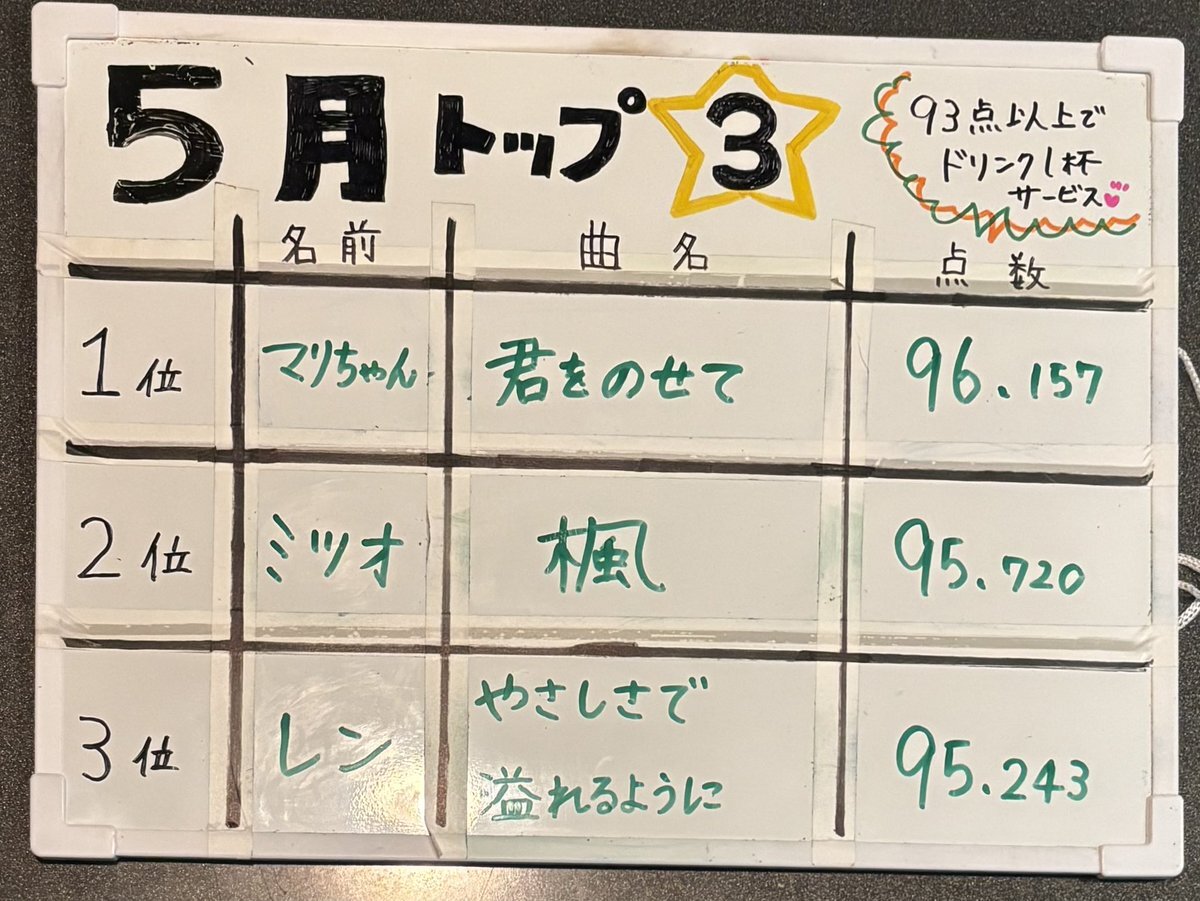 5月トップ3
93点以上で
ドリンク1杯
サービス
名前 曲名 点数
1位 マリちゃん 君をのせて 96.157
2位 ミツオ 楓 95.720
3位 レン やさしさで 95.243
溢れるように